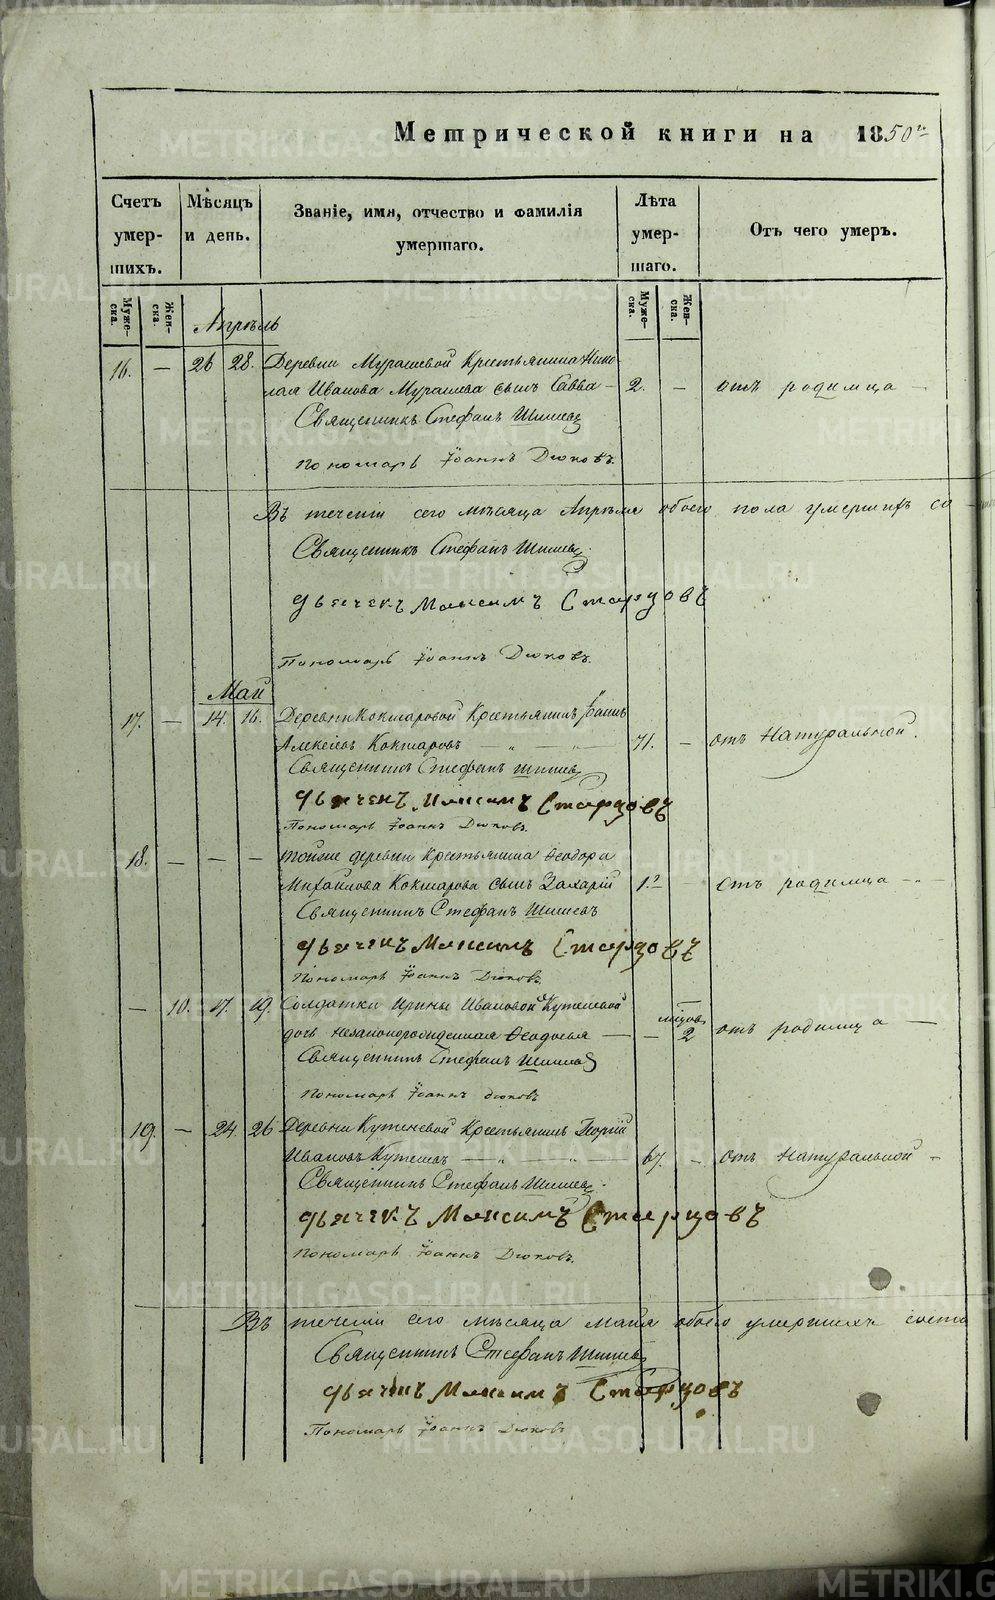 Метрической книги на 1850 г.
Счетъ умер- шихъ.
Мѣсяцъ и день.
Званіе, имя, отчество и фамилія умершаго.
Лѣта умер- шаго.
Отъ чего умеръ.
Муже- ска.
Жен- ска.
Муже- ска.
Жен- ска.
Апрѣль
16. — 26 28. Деревни Мурашевой Крестьянина Нико-
лая Иванова Мурашева сынъ Савва — 2. — отъ родимца —
Священникъ Стефанъ Шишевъ
Пономарь Іоаннъ Дюковъ.
Въ теченіи сего мѣсяца Апрѣля обоего пола умершихъ со
Священникъ Стефанъ Шишевъ.
Дьячекъ Максимъ Старцовъ
Пономарь Іоаннъ Дюковъ.
Май
17. — 14. 16. Деревни Кокшаровой Крестьянинъ Іоаннъ
Алексѣевъ Кокшаровъ — „ — „ — 71. — отъ Натуральной.
Священникъ Стефанъ Шишевъ
Дьячекъ Максимъ Старцовъ
Пономарь Іоаннъ Дюковъ.
18. — — — тойже деревни Крестьянина Ѳеодора
Михайлова Кокшарова сынъ Захарій 1. — отъ родимца —
Священникъ Стефанъ Шишевъ
Дьячекъ Максимъ Старцовъ
Пономарь Іоаннъ Дюковъ.
— 10. 17. 19. Солдатки Ирины Ивановой Кутеневой
дочь незаконорожденная Ѳеодосья — — 2 отъ родимца —
Священникъ Стефанъ Шишевъ
Пономарь Іоаннъ Дюковъ
19. — 24. 26 Деревни Кутеневой Крестьянинъ Георгій
Ивановъ Кутеневъ — „ — „ — 67. — отъ Натуральной —
Священникъ Стефанъ Шишевъ.
Дьячекъ Максимъ Старцовъ
Пономарь Іоаннъ Дюковъ.
Въ теченіи сего мѣсяца Маія обоего умершихъ
Священникъ Стефанъ Шишевъ
Дьячекъ Максимъ Старцовъ
Пономарь Іоаннъ Дюковъ
METRIKI.GASO-URAL.RU